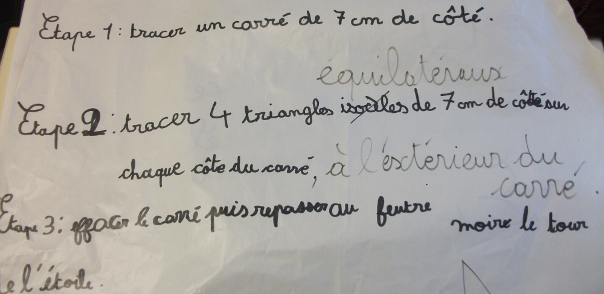 Etape 1: tracer un carré de 7 cm de côté.
équilatéraux
Etape 2: tracer 4 triangles isocèles de 7 cm de côté sur
chaque côte du carré, à l'éxtérieur du
carré.
Etape 3: effacer le carré puis repasser au feutre moire le tour
de l'étoile.